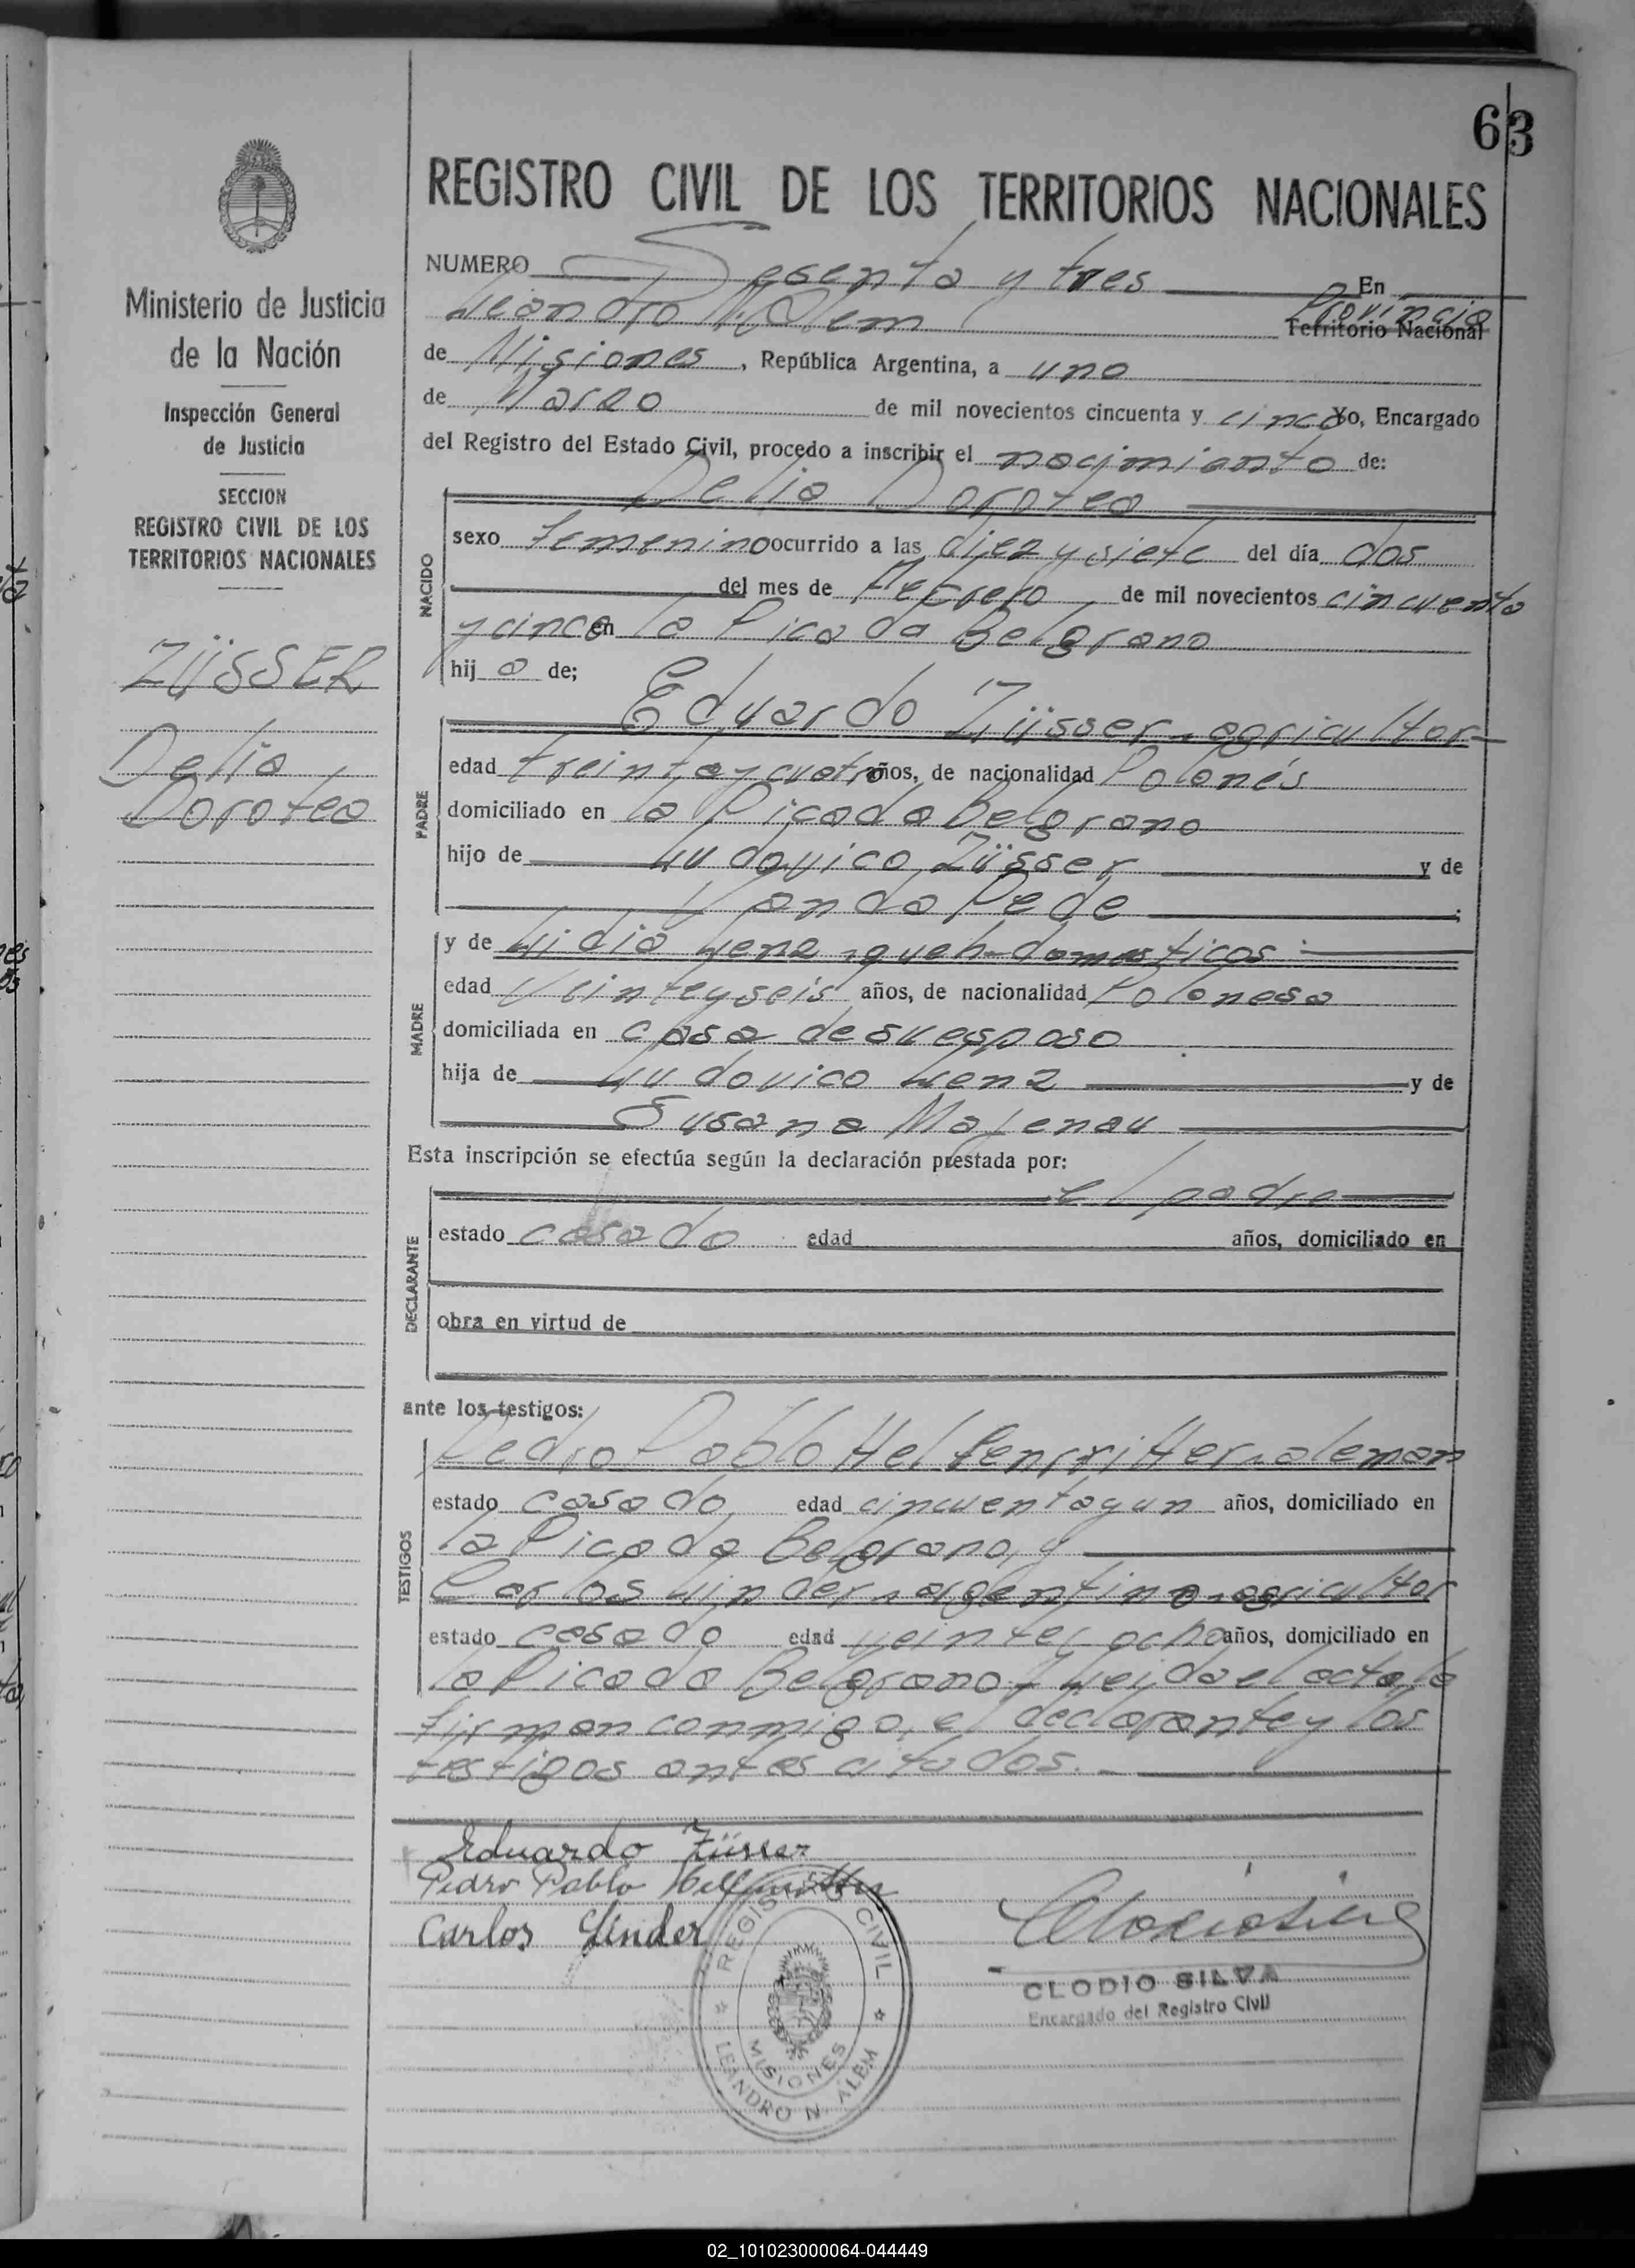 63
REGISTRO CIVIL DE LOS TERRITORIOS NACIONALES
Ministerio de Justicia
de la Nación
Inspección General
de Justicia
SECCION
REGISTRO CIVIL DE LOS
TERRITORIOS NACIONALES
ZÜSSER
Delia
Dorotea
NUMERO Sesenta y tres En
Leandro N. Alem Provincia Territorio Nacional
de Misiones, República Argentina, a uno
de Marzo de mil novecientos cincuenta y cinco Yo, Encargado
del Registro del Estado Civil, procedo a inscribir el nacimiento de:
Delia Dorotea
NACIDO
sexo femenino ocurrido a las diez y siete del día dos
del mes de Febrero de mil novecientos cincuenta
y cinco en la Picada Belgrano
hij a de;
Eduardo Züsser - agricultor
PADRE
edad treinta y cuatro años, de nacionalidad Polonés
domiciliado en la Picada Belgrano
hijo de Ludovico Züsser y de
Vanda Pede;
MADRE
y de Lidia Lenz - queh-domesticos
edad Veinteyseis años, de nacionalidad Polonesa
domiciliada en casa de su esposo
hija de Ludovico Lenz y de
Susana Majenau
Esta inscripción se efectúa según la declaración prestada por:
el padre
DECLARANTE
estado casado edad años, domiciliado en
obra en virtud de
ante los testigos:
TESTIGOS
Pedro Pablo - aleman
estado casado edad cincuentayun años, domiciliado en
la Picada Belgrano, y
Carlos Linder - argentino - agricultor
estado casado edad veintey ocho años, domiciliado en
la Picada Belgrano - Leida el acta, la
firman conmigo, el declarante y los
testigos antes citados. -
Eduardo Züsser
Pedro Pablo
Carlos Linder
REGISTRO CIVIL
MISIONES
LEANDRO N. ALEM
CLODIO SILVA
Encargado del Registro Civil
02_101023000064-044449